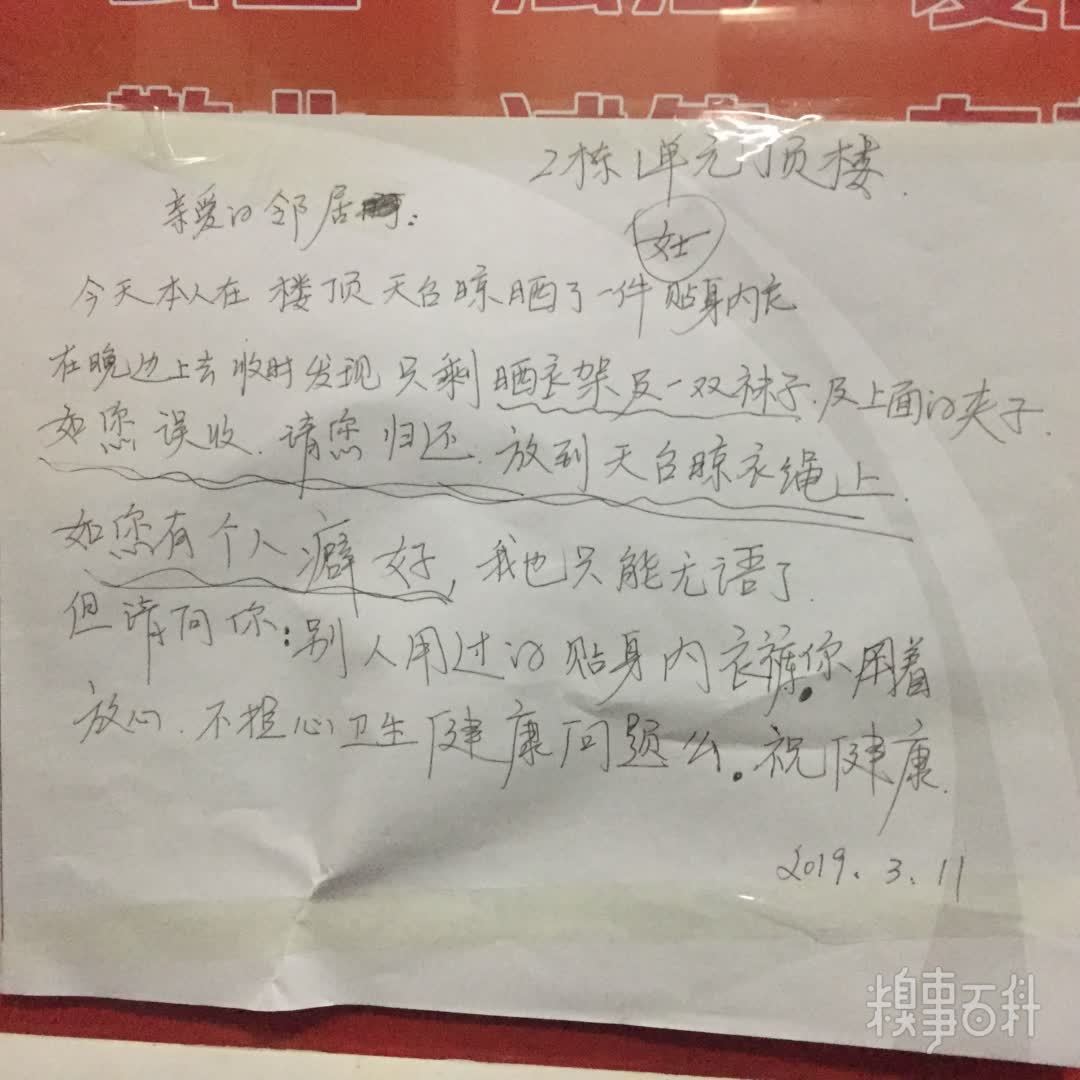 敬业 诚信 友
2栋1单元顶楼.
亲爱的邻居:
女士
今天本人在楼顶天台晾晒了一件贴身内衣
在晚边上去收时发现只剩晒衣架及一双袜子.及上面的夹子.
如您误收.请您归还.放到天台晾衣绳上.
如您有个人癖好,我也只能无语了.
但请问你:别人用过的贴身内衣裤.你用着
放心.不担心卫生健康问题么.祝健康.
2019.3.11
糗事百科